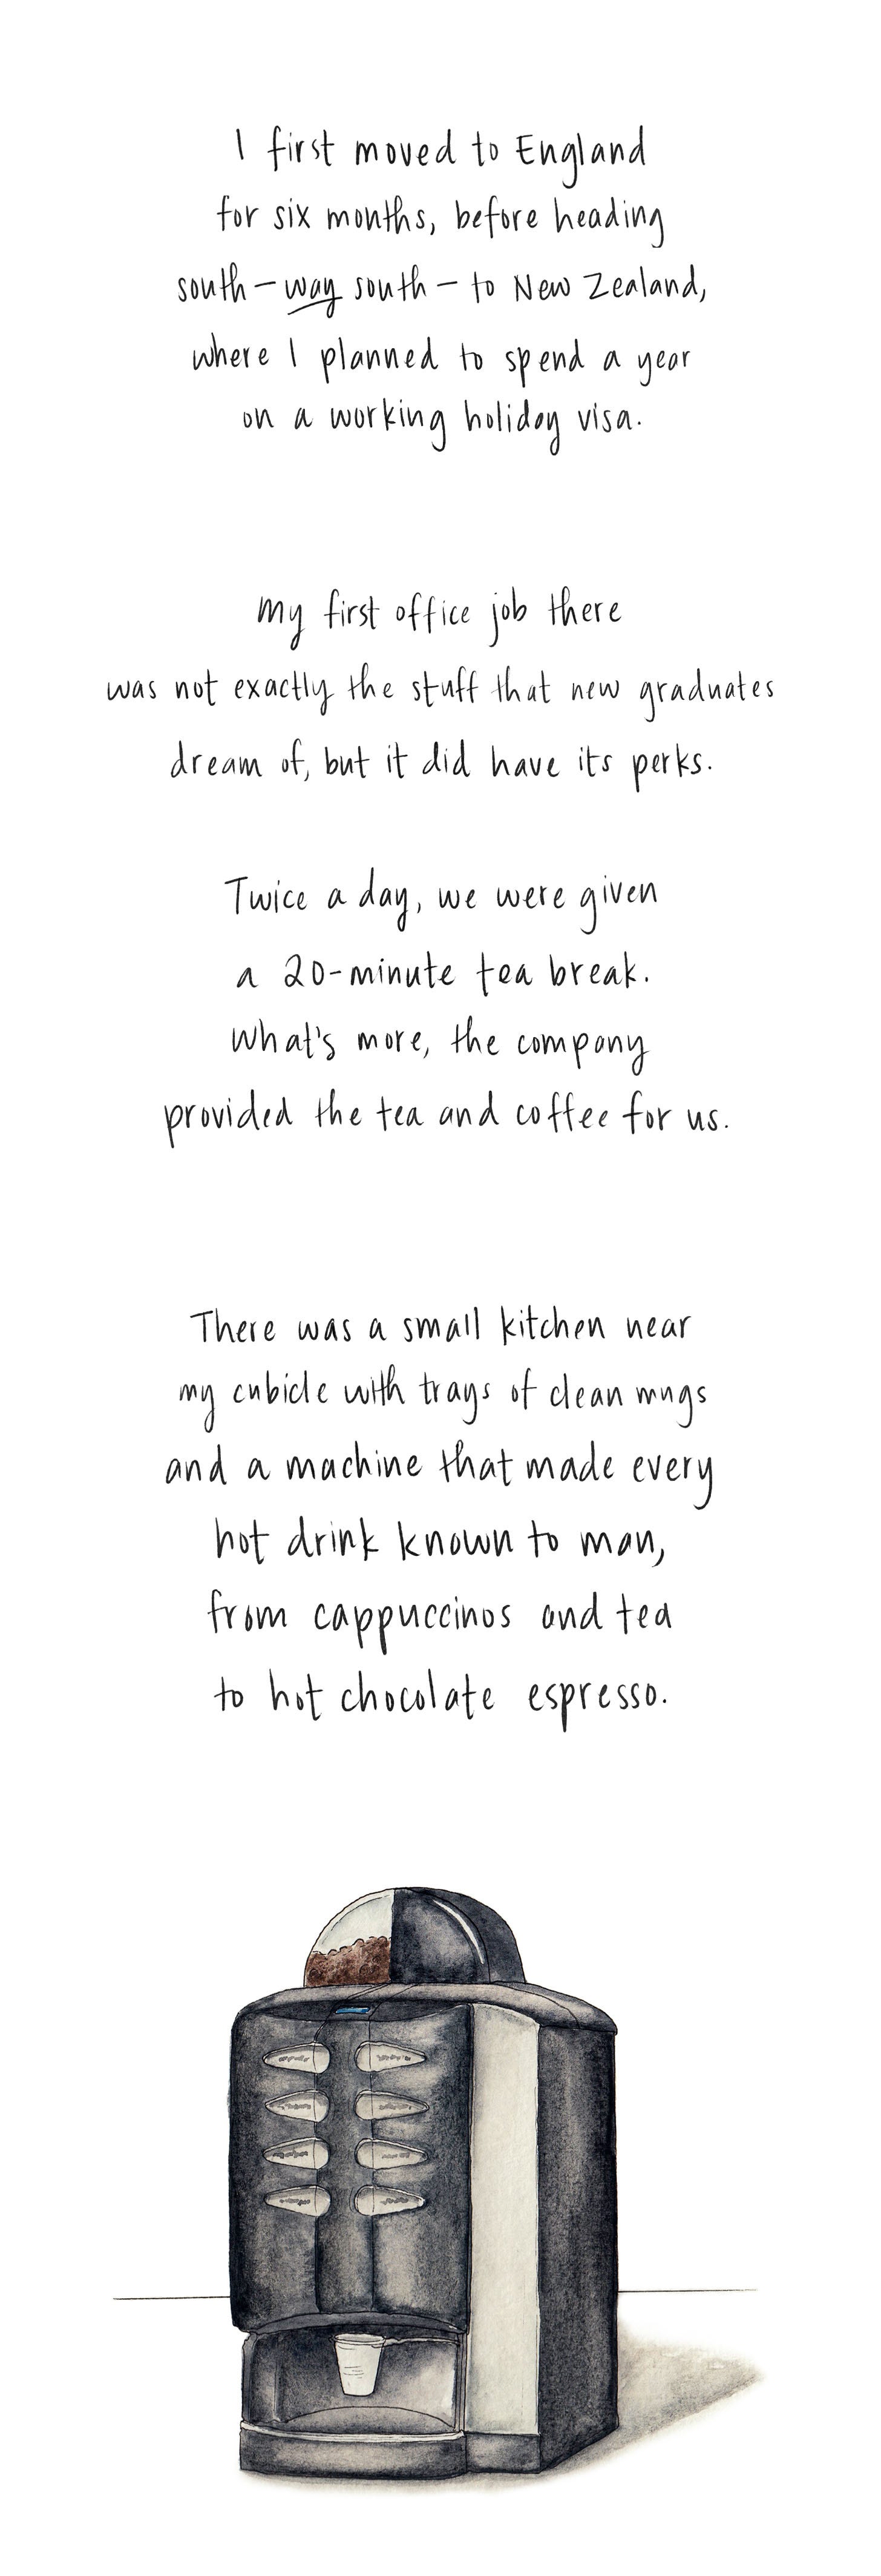 I first moved to England
for six months, before heading
south – way south – to New Zealand,
where I planned to spend a year
on a working holiday visa.
My first office job there
was not exactly the stuff that new graduates
dream of, but it did have its perks.
Twice a day, we were given
a 20-minute tea break.
What's more, the company
provided the tea and coffee for us.
There was a small kitchen near
my cubicle with trays of clean mugs
and a machine that made every
hot drink known to man,
from cappuccinos and tea
to hot chocolate espresso.